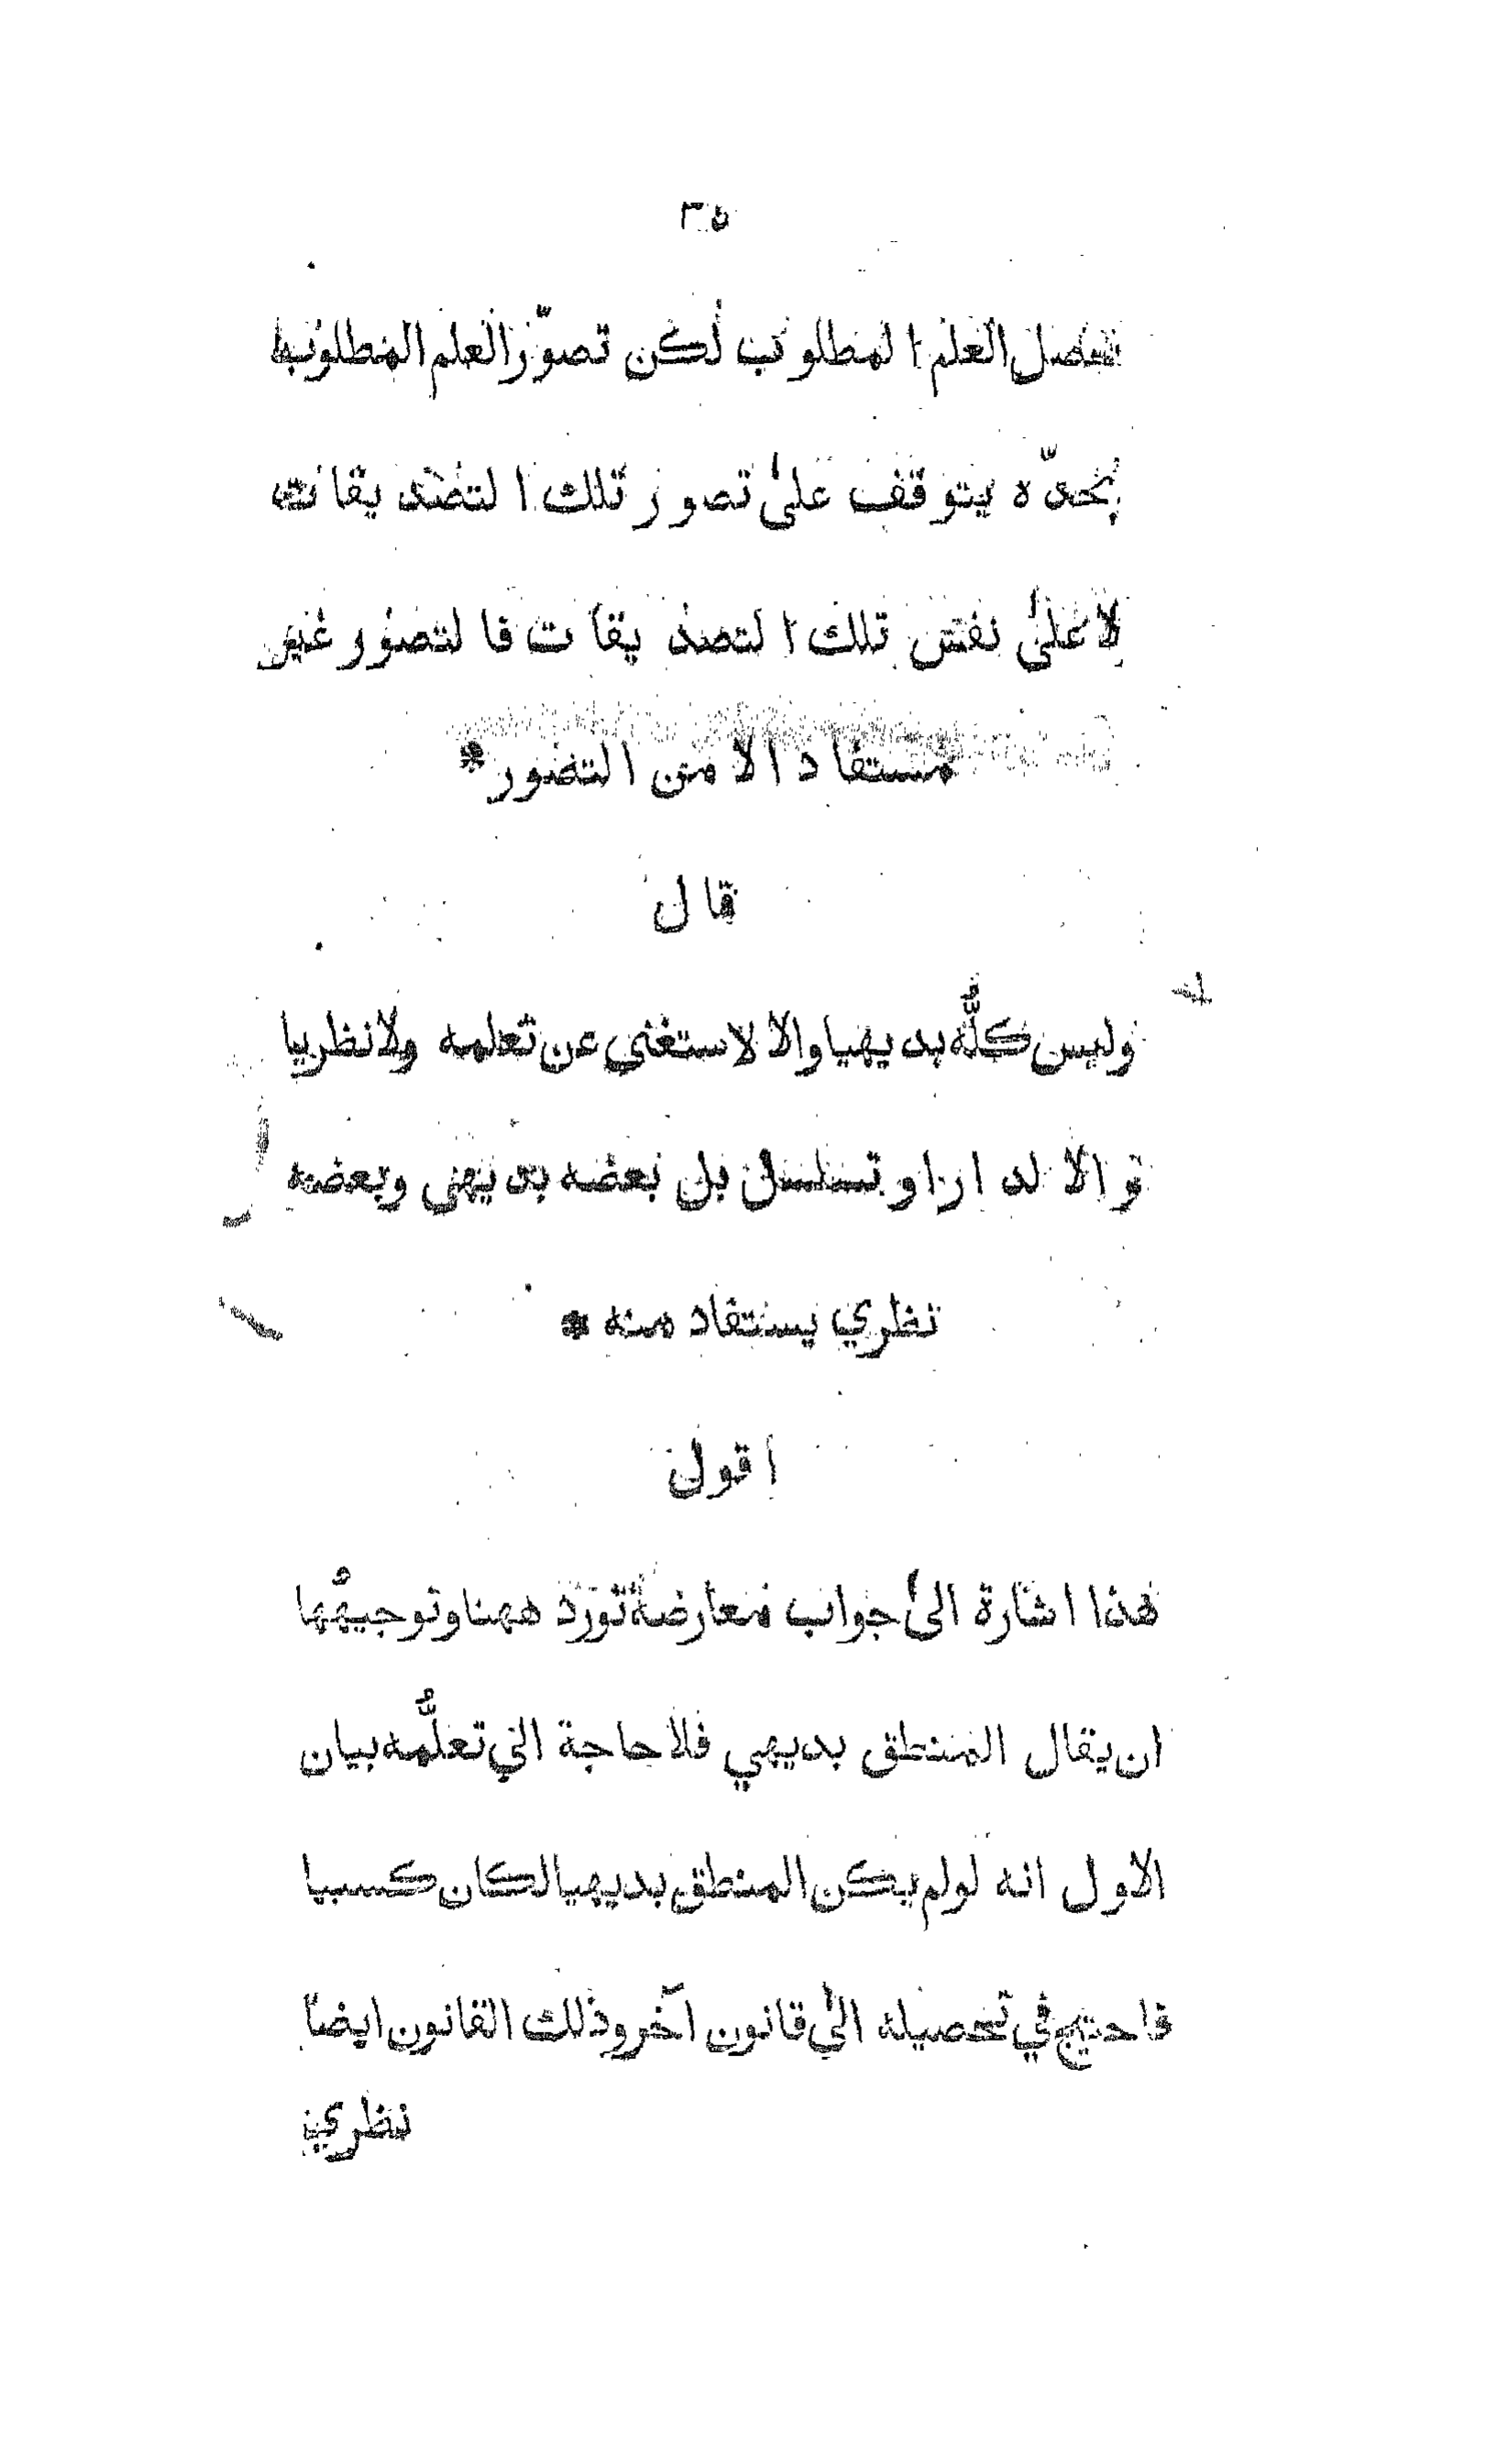 ٣٥
تحصل العلم المطلوب لكن تصوّر العلم المطلوب
بحدّه يتوقف على تصور تلك التصديقات
لا على نفس تلك التصديقات فالتصور غير
مستفاد الا من التصور *
قال
وليس كلُّه بديهيا والا لاستغني عن تعلمه ولا نظريا
و الا لدار او تسلسل بل بعضه بديهي وبعضه
نظري يستفاد منه *
اقول
هذا اشارة الى جواب معارضة تورد ههنا وتوجيهُها
ان يقال المنطق بديهي فلا حاجة الى تعلُّمه بيان
الاول انه لو لم يكن المنطق بديهيا لكان كسبيا
فاحتيج في تحصيله الى قانون آخر وذلك القانون ايضا
نظري